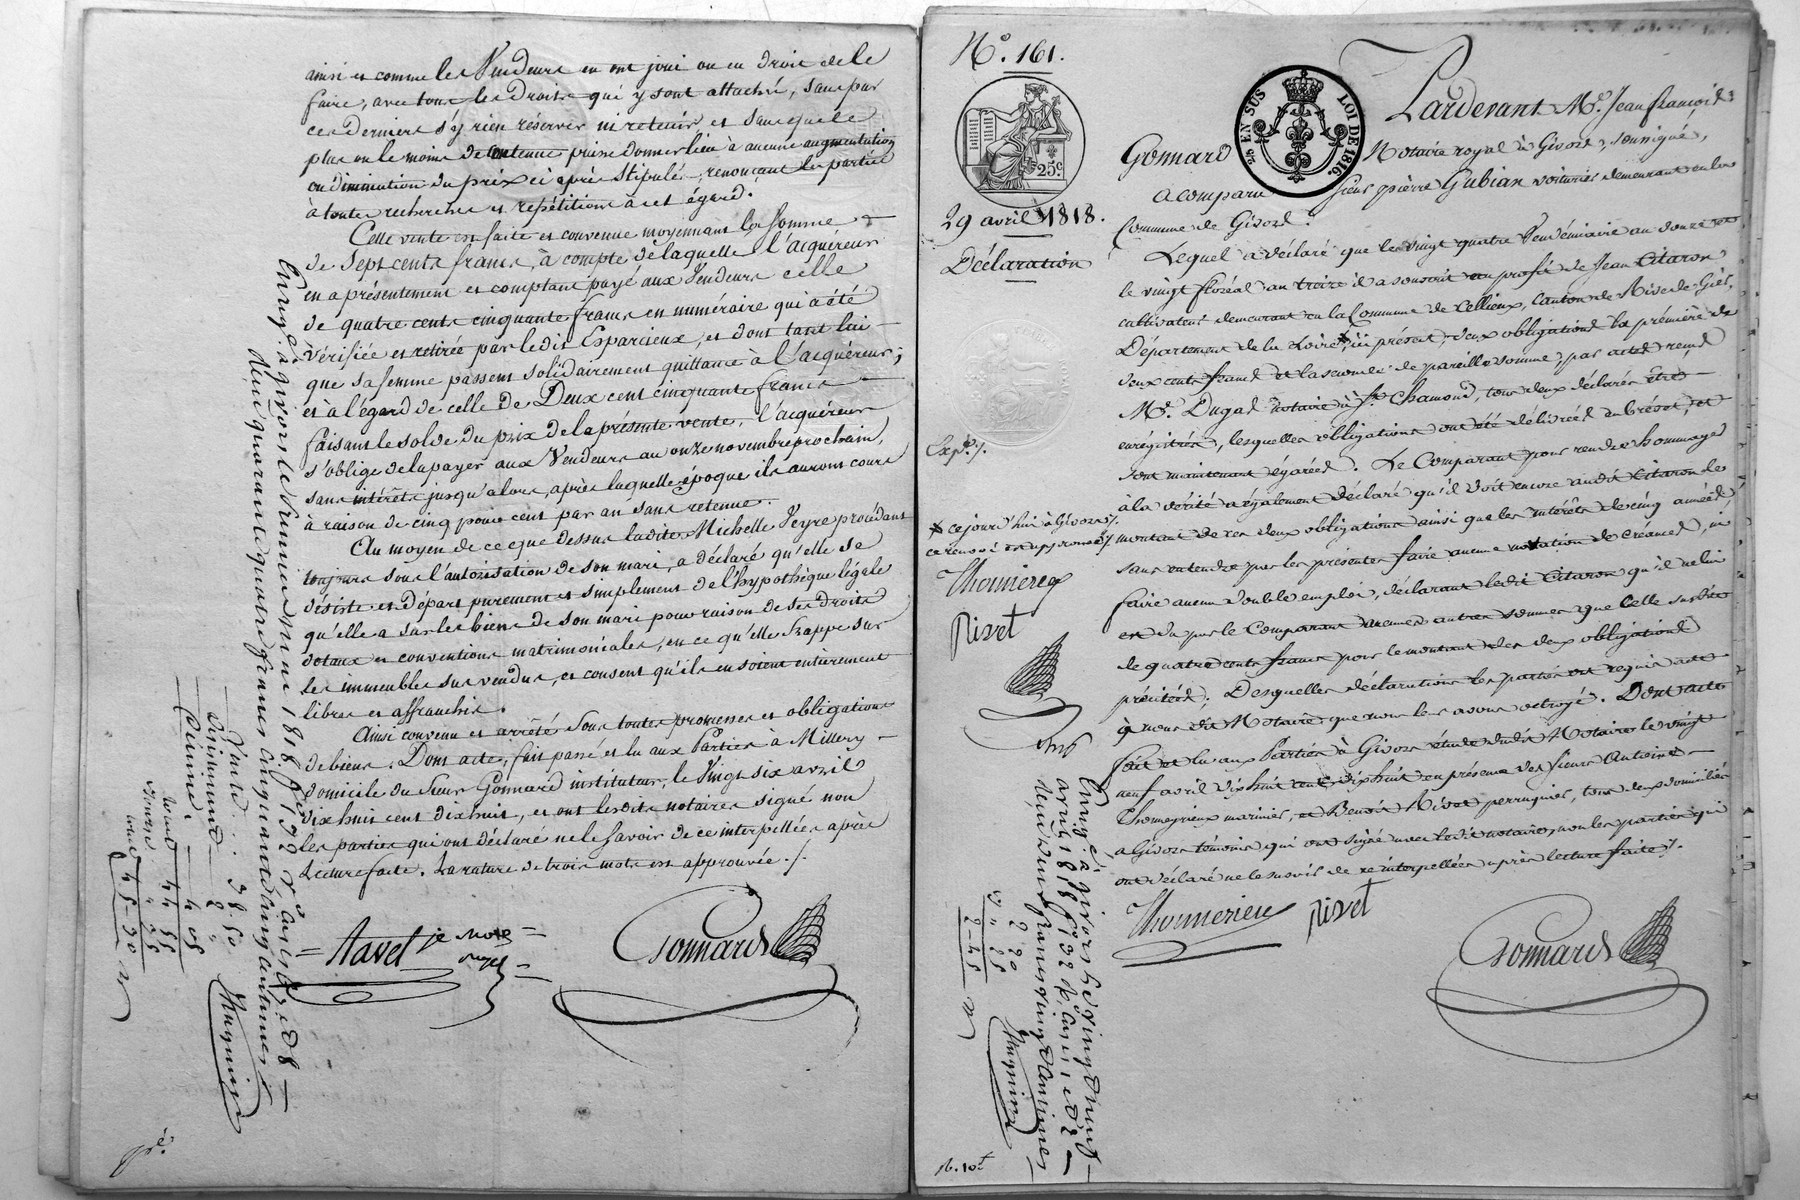 ainsi et comme les Vendeurs en ont joui ou eu droit de le
faire, avec tous les droits qui y sont attaché, sans par
ces derniers s'y rien réserver ni retenir et sans que le
plus ou le moins de contenue puisse donner lieu à aucune augmentation
ou diminution du prix ci après stipulé, renonçant les parties
à toutes recherches et répétitions à cet égard.
Cette vente est faite et convenue moyennant la somme
de Sept cents francs, à compte de laquelle l'acquéreur
en a présentement et comptant payé aux Vendeurs celle
de quatre cents cinquante francs en numéraire qui a été
vérifiée et retirée par le dit Esparcieux, et dont tant lui
que sa femme passent solidairement quittance à l'acquéreur;
et à l'égard de celle de Deux cent cinquante francs
faisant le solde du prix de la présente vente, l'acquéreur
s'oblige de la payer aux Vendeurs au onze novembre prochain,
sans intérêts jusqu'alors, après laquelle époque ils auront cours
à raison de cinq pour cent par an sans retenue.
Au moyen de ce que dessus ladite Michelle Veyre procédant
toujours sous l'autorisation de son mari, a déclaré qu'elle se
désiste et départ purement et simplement de l'hypothèque légale
qu'elle a sur les biens de son mari pour raison de ses droits
dotaux et conventions matrimoniales, en ce qu'elle frappe sur
les immeubles sus vendus, et consent qu'ils en soient entièrement
libres et affranchis.
Ainsi convenu et arrêté sous toutes promesses et obligations
de biens. Dont acte, fait passé et lu aux Parties à Millery
domicile du Sieur Gonnard instituteur, le Vingt six avril
dix huit cent dix huit, et ont lesdits notaires signé non
les parties qui ont déclaré ne le savoir de ce interpellées après
Lecture faite. La rature de trois mots est approuvée./.
Tavel
Gonnard
Enregé à givors le
Vente . . 38. 50
Dixième
N.° 161.
25.c
29 avril 1818.
Déclaration
25.c EN SUS
LOI DE 1816.
Pardevant M.e Jean françois
Gonnard Notaire royal à Givors, soussigné,
a comparu Sieur pierre Gubian voiturier demeurant en la
Commune de Givors.
Lequel a déclaré que les vingt quatre Vendémiaire an douze et
le vingt floréal an treize il a souscrit au profit de Jean Citaron
cultivateur demeurant en la Commune de Cellieux, canton de Rive-de-Gier,
Département de la Loire, * ici présent, deux obligations la première de
deux cents francs et la seconde de pareille somme, par actes reçus
M.e Dugas notaire à S.t Chamond, tous deux déclarés être
enrégistrés, lesquelles obligations ont été délivrées en brévet, et
sont maintenant égarées. Le Comparant pour rendre hommage
à la vérité a également déclaré qu'il doit encore audit Citaron le
montant de ces deux obligations ainsi que les intérêts de cinq années,
sans entendre par les présentes faire aucune novation de créances, ni
faire aucun double emploi, déclarant ledit Citaron qu'il ne lui
est du par le Comparant aucunes autres sommes que celle susdite
de quatre cents francs pour le montant des deux obligations
précitées; Desquelles déclarations les parties ont requis acte
à nous dit Notaire que nous leur avons octroyé. Dont acte
fait et lu aux Parties à Givors étude dudit Notaire le vingt
neuf avril dix huit cent dix huit en présence des sieurs Antoine
Thomeyrieux marinier, et Benoit Rivet perruquier, tous deux domiciliés
à Givors témoins qui ont signé avec ledit notaire, non les parties qui
ont déclaré ne le savoir de ce interpellées après lecture faite./.
Rivet
Gonnard
Exp.é /.
* ce jourd'hui à Givors /.
ce renvoi est approuvé /.
Rivet
Enregé à givors le vingt neuf
avril 1818